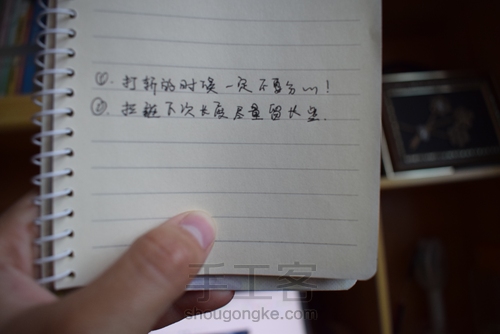 ①. 打斩的时候一定不要分心!
②. 拉链下次长度尽量留长些.
手工客
shougongke.com